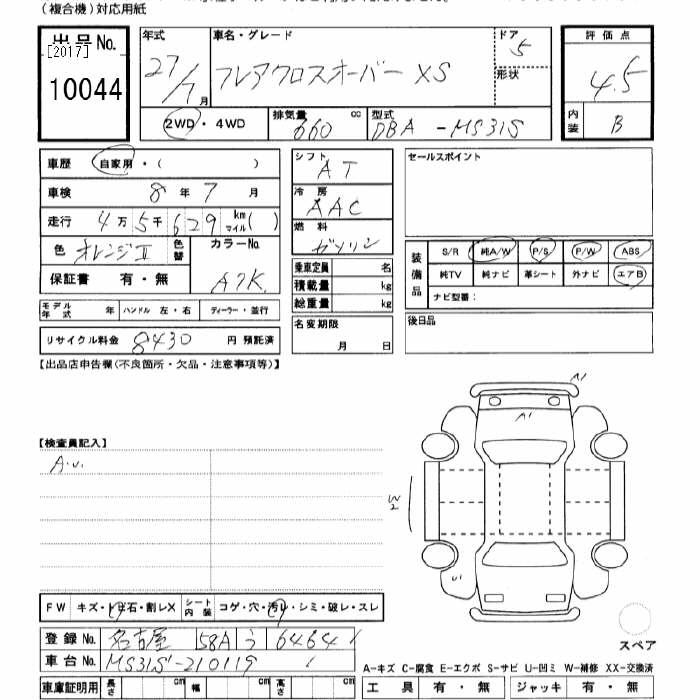 (複合機)対応用紙
出品No.
[2017]
10044
年式 27/7月
車名・グレード フレアクロスオーバー XS
ドア 5
形状
評価点 4.5
内装 B
2WD・4WD
排気量 660 cc
型式 DBA-MS31S
車歴 自家用・( )
車検 8年 7月
走行 4万5千629 km マイル( )
色 オレンジII 色替
カラーNo. A7K
保証書 有・無
モデル年式 年 ハンドル 左・右 ディーラー・並行
リサイクル料金 8430 円 預託済
シフト AT
冷房 AAC
燃料 ガソリン
乗車定員 名
積載量 kg
総重量 kg
名変期限 月 日
セールスポイント
装備品 S/R 純A/W P/S P/W ABS
純TV 純ナビ 革シート 外ナビ エアB
ナビ型番:
後日品
【出品店申告欄(不良箇所・欠品・注意事項等)】
【検査員記入】
A.U.
A1
A1
W2
U1
スペア
FW キズ・トビ石・割レX シート内装 コゲ・穴・汚レ・シミ・破レ・スレ
登録No. 名古屋 581 う 6464
車台No. MS31S-210119
車庫証明用 長さ cm 幅 cm 高さ cm
A-キズ C-腐食 E-エクボ S-サビ U-凹ミ W-補修 XX-交換済
工具 有・無 ジャッキ 有・無